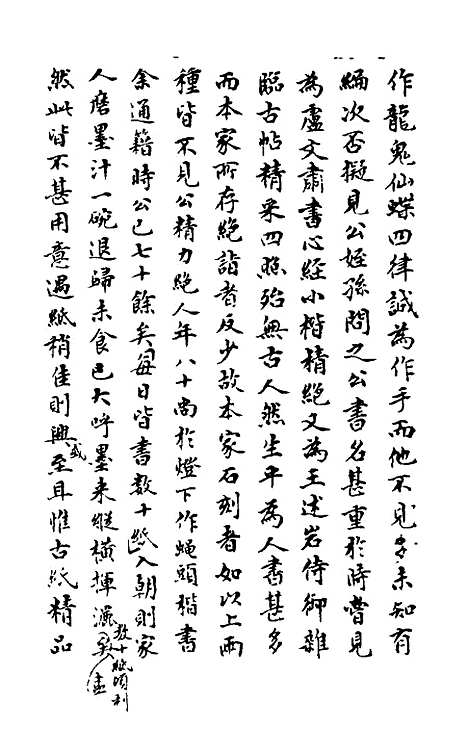 作龍鬼仙蝶四律誠為作手而他不見㕘未知有
編次否擬見公姪孫問之公書名甚重於時嘗見
為盧文肅書心經小楷精絕又為王述岩侍御雜
臨古帖精采四照殆無古人然生平為人書甚多
而本家所存絕詣者反少故本家石刻者如以上兩
種皆不見公精力絕人年八十尚於燈下作蠅頭楷書
余通籍時公已七十餘矣每日皆書數十紙入朝則家
人磨墨汁一碗退歸未食已大呼墨来縱橫揮灑數十紙頃刻盡矣
然此皆不甚用意遇紙稍佳則興或至耳惟古紙精品